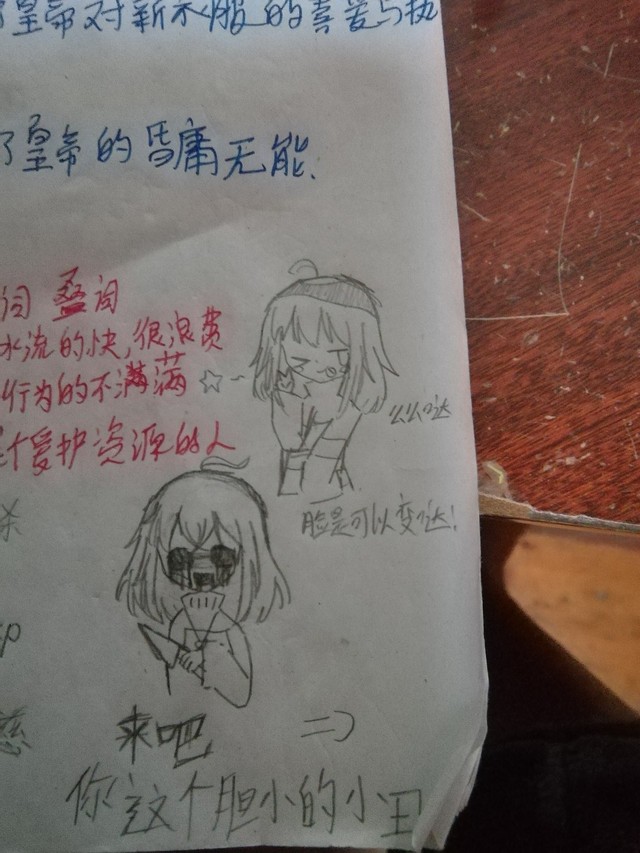 皇帝对新衣服的喜爱与执
了皇帝的昏庸无能.
词 叠词
水流的快,很浪费
行为的不满满
个爱护资源的人
么么哒
脸是可以变哒!
杀
来吧 =)
你这个胆小的小王